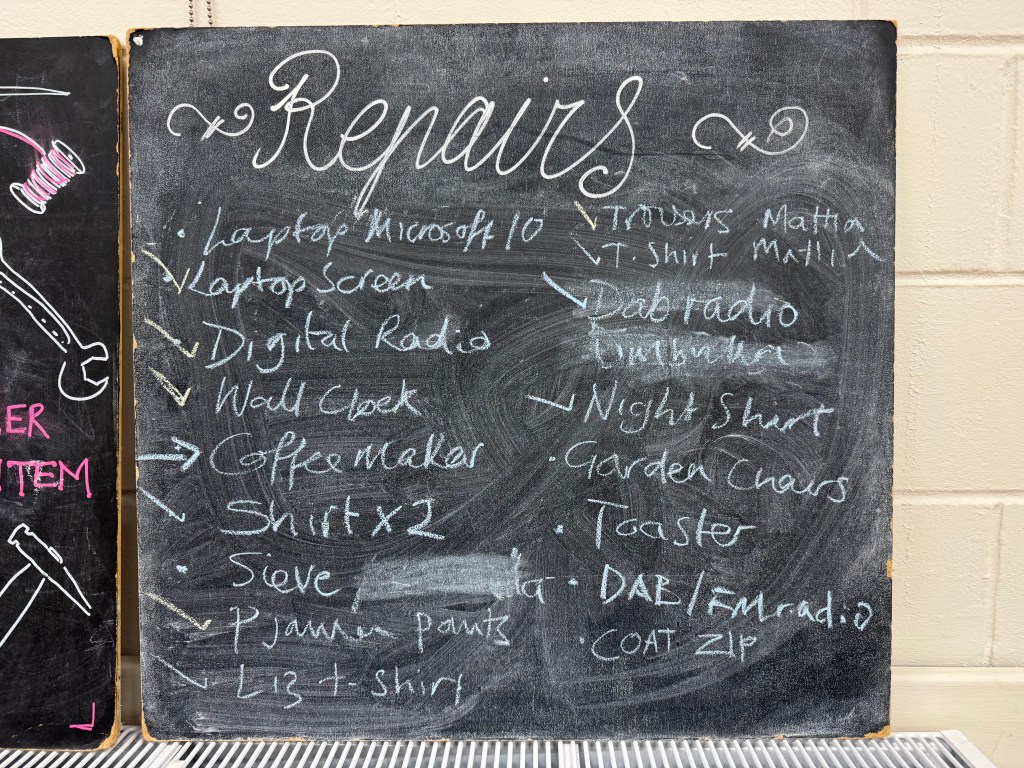 ER
ITEM
Repairs
• Laptop Microsoft 10
• Laptop Screen
Digital Radio
Wall Clock
Coffee Maker
Shirt x 2
• Sieve
Pjamma pants
Liz t-shirt
Trousers Mattia
T. Shirt Mattia
Dab radio
Night Shirt
• Garden Chairs
• Toaster
• DAB/FM radio
• COAT ZIP